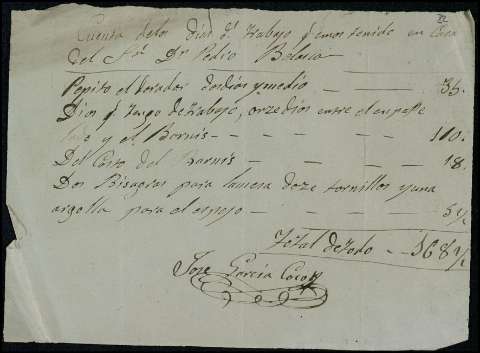 Cuenta delos dias q.e trabajo q emos tenido en Casa
del S.or D.n Pedro
Pepito el dorador dosdias ymedio — — — 35.
Dias q Tengo detrabajo, onzedias entre el enpaste
y el Barnis — — — — 110.
Del Costo del Barnis — — — — 18.
Dos Bisagras para lamesa doze tornillos yuna
argolla para el espejo — — — — 5 1/2
Total detodo — 168 1/2
Jose Garcia